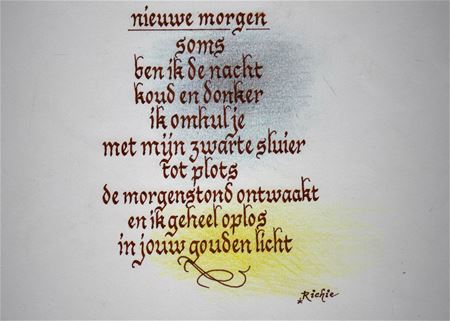 nieuwe morgen
soms
ben ik de nacht
koud en donker
ik omhul je
met mijn zwarte sluier
tot plots
de morgenstond ontwaakt
en ik geheel oplos
in jouw gouden licht
Richie